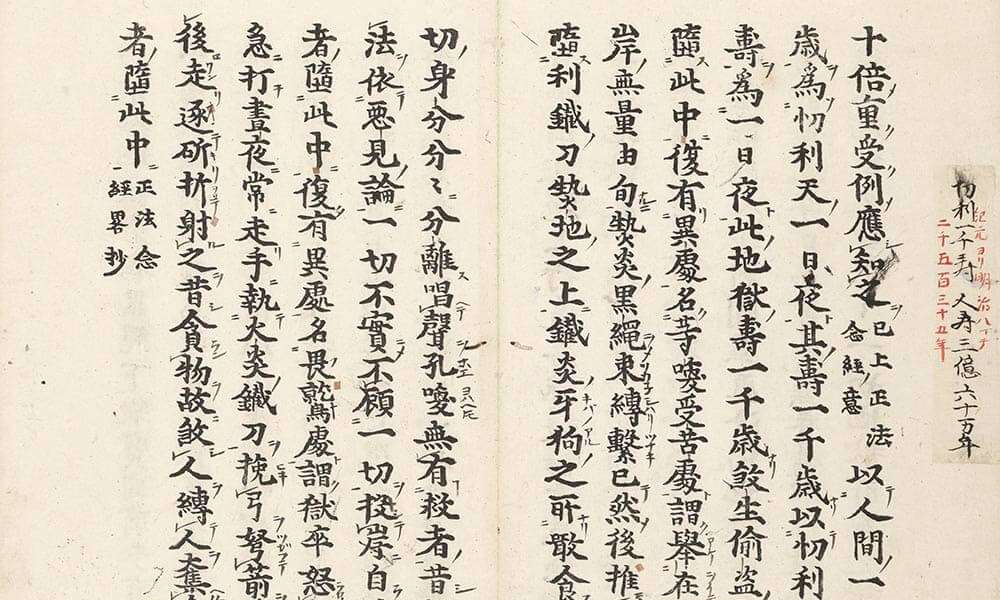 紀元ヨリ明治八マテ
二千五百三十五年
忉利一千寿 人寿三億六十万年
十倍重受例應知之 已上正法念經意 以人間一
歳為忉利天一日夜其壽一千歳以忉利
壽為一日夜此地獄壽一千歳煞生偷盗
墮此中復有異處名等喚受苦處謂舉在
岸無量由旬熱炎黒繩束縛繫已然後推
墮利鐵刀熱地之上鐵炎牙狗之所噉食
切身分分〻分離唱聲孔喚無有救者昔
法依惡見論一切不實不顧一切投岸自
者墮此中復有異處名畏鷲處謂獄卒怒
急打晝夜常走手執火炎鐵刀挽弓弩箭
後走逐斫折射之昔貪物故煞人縛人奪
者墮此中 正法念經畧抄